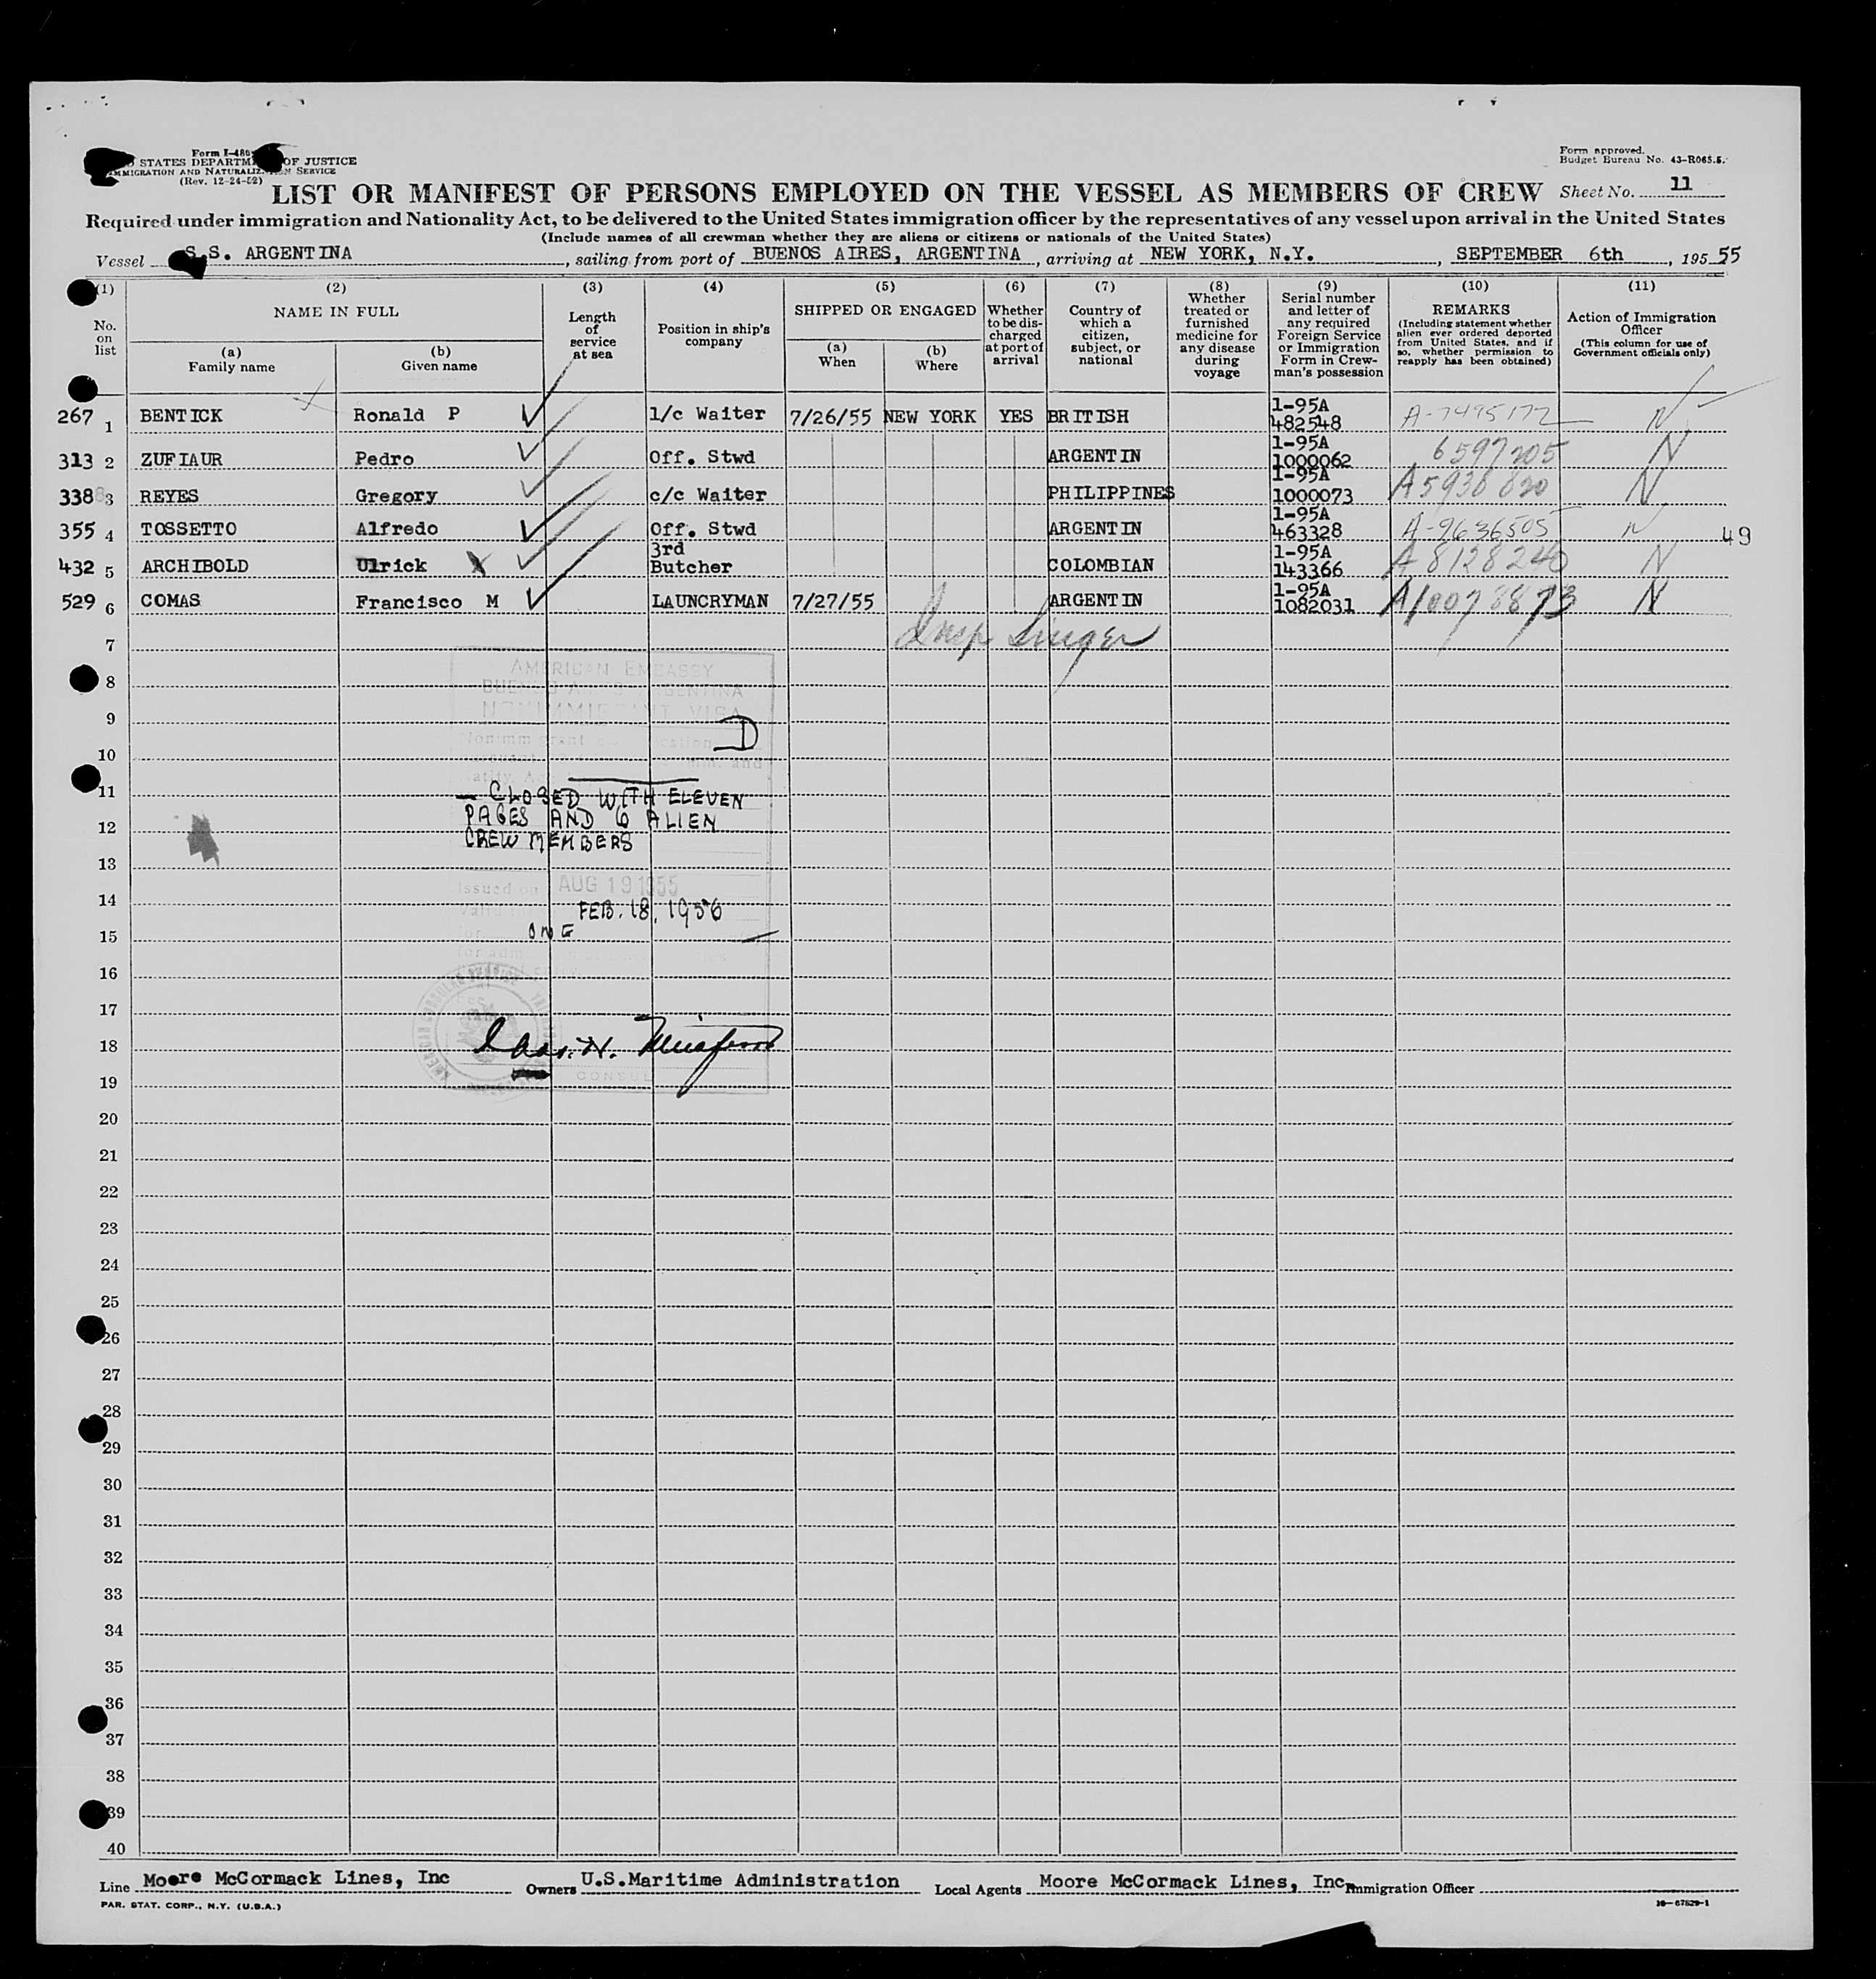 Form I-480
STATES DEPARTM OF JUSTICE
MMIGRATION AND NATURALIZ N SERVICE
(Rev. 12-24-52)
Form approved.
Budget Bureau No. 43-R065.5.
LIST OR MANIFEST OF PERSONS EMPLOYED ON THE VESSEL AS MEMBERS OF CREW
Sheet No. 11
Required under immigration and Nationality Act, to be delivered to the United States immigration officer by the representatives of any vessel upon arrival in the United States
(Include names of all crewman whether they are aliens or citizens or nationals of the United States)
Vessel S.S. ARGENTINA, sailing from port of BUENOS AIRES, ARGENTINA, arriving at NEW YORK, N.Y., SEPTEMBER 6th, 195 55
(1) No. on list
(2) NAME IN FULL
(a) Family name
(b) Given name
(3) Length of service at sea
(4) Position in ship's company
(5) SHIPPED OR ENGAGED
(a) When
(b) Where
(6) Whether to be discharged at port of arrival
(7) Country of which a citizen, subject, or national
(8) Whether treated or furnished medicine for any disease during voyage
(9) Serial number and letter of any required Foreign Service or Immigration Form in Crewman's possession
(10) REMARKS
(Including statement whether alien ever ordered deported from United States, and if so, whether permission to reapply has been obtained)
(11) Action of Immigration Officer
(This column for use of Government officials only)
267 1 BENTICK Ronald P 1/c Waiter 7/26/55 NEW YORK YES BRITISH 1-95A 482548 A-7495172 N
313 2 ZUFIAUR Pedro Off. Stwd ARGENTIN 1-95A 1000062 6597205 N
338 3 REYES Gregory c/c Waiter PHILIPPINES 1-95A 1000073 A5938820 N
355 4 TOSSETTO Alfredo Off. Stwd ARGENTIN 1-95A 463328 A-9636505 N 49
432 5 ARCHIBOLD Ulrick X 3rd Butcher COLOMBIAN 1-95A 143366 A8128240 N
529 6 COMAS Francisco M LAUNCRYMAN 7/27/55 ARGENTIN 1-95A 1082031 A10078873 N
Insp Singer
7
AMERICAN EMBASSY
8
BUENOS AIRES ARGENTINA
NONIMMIGRANT VISA
9
D
10
11
CLOSED WITH ELEVEN
PAGES AND 6 ALIEN
12
CREW MEMBERS
13
Issued on AUG 19 1955
14
FEB. 18, 1956
15
ONE
16
17
18
CONSUL
19
20
21
22
23
24
25
26
27
28
29
30
31
32
33
34
35
36
37
38
39
40
Line Moore McCormack Lines, Inc Owners U.S.Maritime Administration Local Agents Moore McCormack Lines, Inc. Immigration Officer
PAR. STAT. CORP., N.Y. (U.S.A.)
16—67529-1